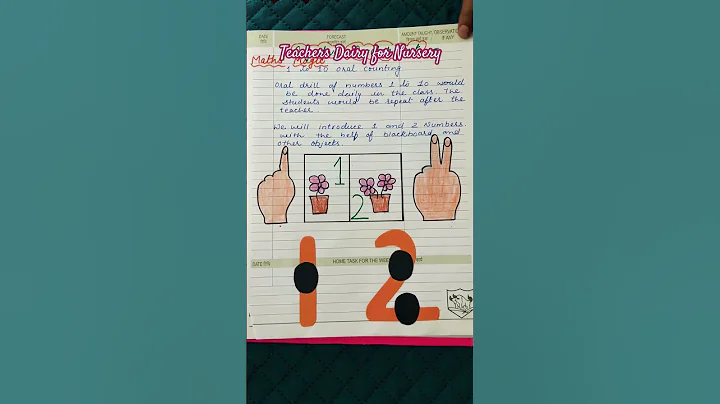 DATE
FORECAST
AMOUNT TAUGHT, OBSERVATION
IF ANY
Teachers Dairy for Nursery
Maths Magic
1 to 10 oral counting
Oral drill of numbers 1 to 10 would
be done daily in the class. The
students would be repeat after the
teacher.
We will introduce 1 and 2 Numbers
with the help of blackboard and
other objects.
1
2
DATE
HOME TASK FOR THE WEEK
1 2